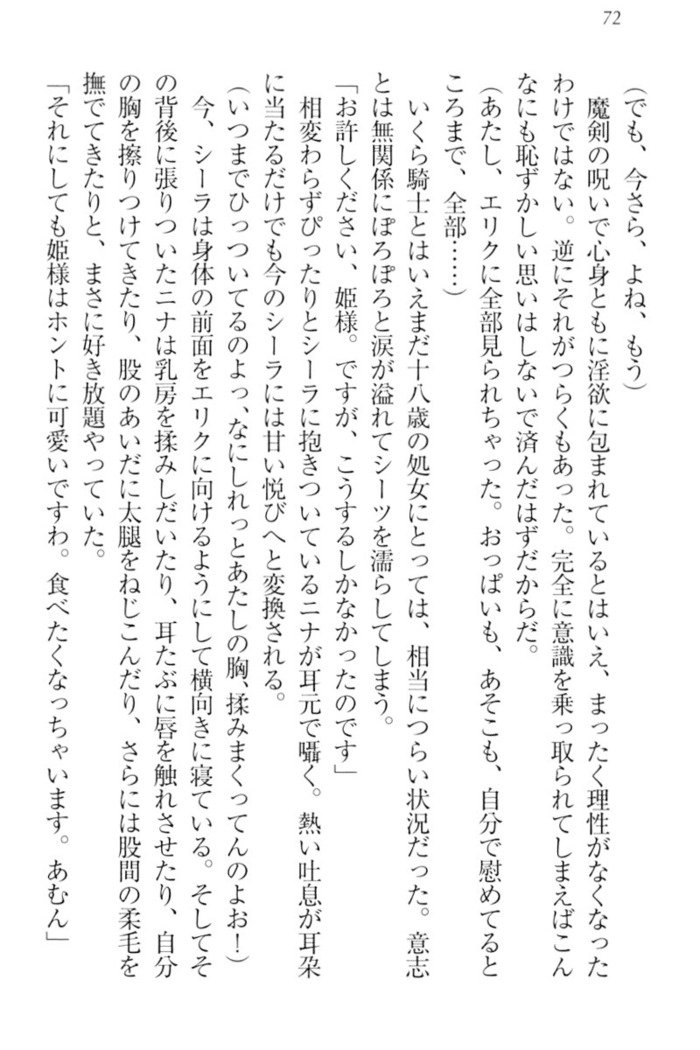 72
（でも、今さら、よね、もう）
　魔剣の呪いで心身ともに淫欲に包まれているとはいえ、まったく理性がなくなった
わけではない。逆にそれがつらくもあった。完全に意識を乗っ取られてしまえばこん
なにも恥ずかしい思いはしないで済んだはずだからだ。
（あたし、エリクに全部見られちゃった。おっぱいも、あそこも、自分で慰めてると
ころまで、全部……）
　いくら騎士とはいえまだ十八歳の処女にとっては、相当につらい状況だった。意志
とは無関係にぽろぽろと涙が溢れてシーツを濡らしてしまう。
「お許しください、姫様。ですが、こうするしかなかったのです」
　相変わらずぴったりとシーラに抱きついているニナが耳元で囁く。熱い吐息が耳朶
に当たるだけでも今のシーラには甘い悦びへと変換される。
（いつまでひっついてるのよっ、なにしれっとあたしの胸、揉みまくってんのよお！）
　今、シーラは身体の前面をエリクに向けるようにして横向きに寝ている。そしてそ
の背後に張りついたニナは乳房を揉みしだいたり、耳たぶに唇を触れさせたり、自分
の胸を擦りつけてきたり、股のあいだに太腿をねじこんだり、さらには股間の柔毛を
撫でてきたりと、まさに好き放題やっていた。
「それにしても姫様はホントに可愛いですわ。食べたくなっちゃいます。あむん」